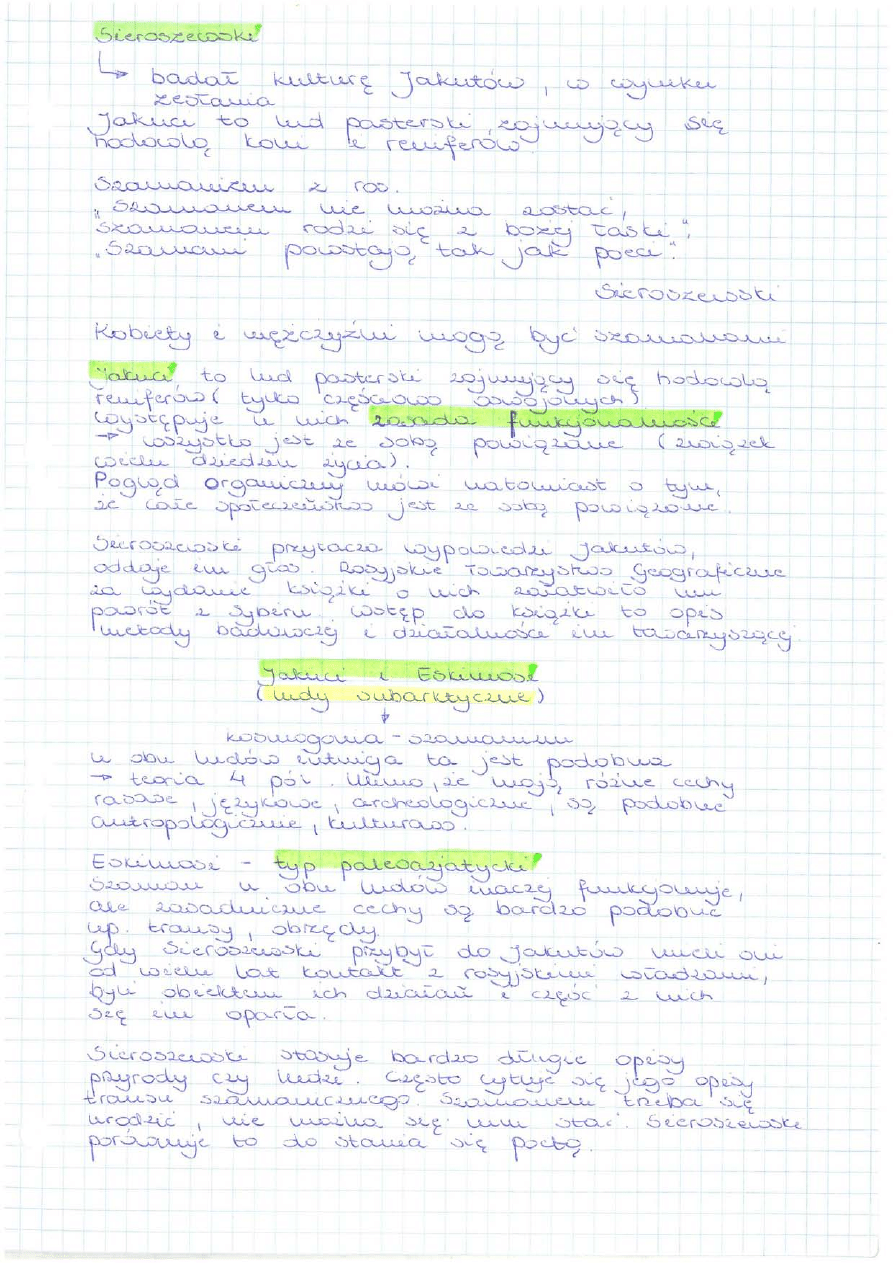 Sieroszewski
↳ badał kulturę Jakutów, w wyniku
zesłania
Jakuci to lud pasterski zajmujący się
hodowlą koni i reniferów.
Szamanizm z ros.
„Szamanem nie można zostać,
szamanem rodzi się z bożej łaski".
„Szamani powstają tak jak poeci".
Sieroszewski
Kobiety i mężczyźni mogą być szamanami
Jakuci to lud pasterski zajmujący się hodowlą
reniferów (tylko częściowo oswojonych)
Występuje u nich zasada funkcjonalności
→ wszystko jest ze sobą powiązane (związek
wielu dziedzin życia).
Pogląd organiczny mówi natomiast o tym,
że całe społeczeństwo jest ze sobą powiązane.
Sieroszewski przytacza wypowiedzi Jakutów,
oddaje im głos. Rosyjskie Towarzystwo Geograficzne
za wydanie książki o nich załatwiło mu
powrót z Syberii. Wstęp do książki to opis
metody badawczej i działalności im towarzyszącej.
Jakuci i Eskimosi
(ludy subarktyczne)
↓
kosmogonia - szamanizm
u obu ludów intuicja ta jest podobna
→ teoria 4 pól. Mimo, że mają różne cechy
rasowe, językowe, archeologiczne, są podobne
antropologicznie, kulturowo.
Eskimosi - typ paleoazjatycki
Szaman u obu ludów inaczej funkcjonuje,
ale zasadnicze cechy są bardzo podobne
np. transy, obrzędy.
Gdy Sieroszewski przybył do Jakutów mieli oni
od wielu lat kontakt z rosyjskimi władzami,
byli obiektem ich działań i część z nich
się im oparła.
Sieroszewski stosuje bardzo długie opisy
przyrody czy ludzi. Często cytuje się jego opisy
transu szamanicznego. Szamanem trzeba się
urodzić, nie można się nim stać. Sieroszewski
porównuje to do stania się poetą.